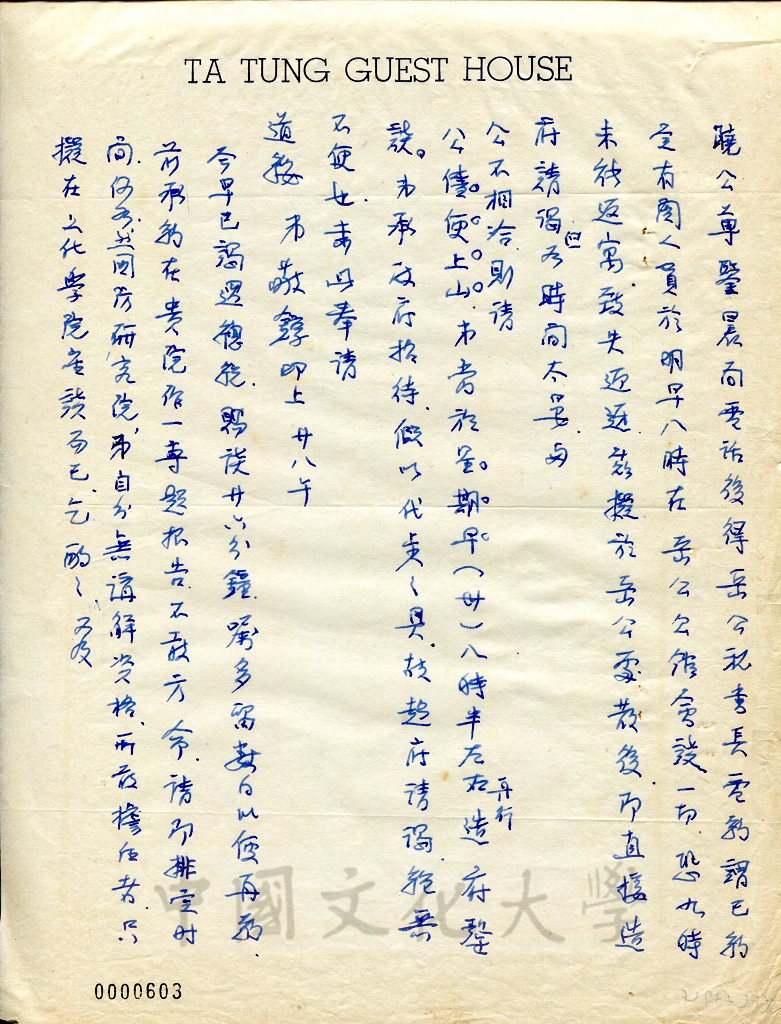 TA TUNG GUEST HOUSE
曉公尊鑒晨間電話後得岳公秘書長電約謂已約
定有關人員於明早八時在岳公公館會談一切恐九時
未能返寓致失迎迓茲擬於岳公處散後即直接造
府請謁但為時間太晏與
公不相洽則請
公儘便上山弟當於星期早(廿)八時半左右再行造府聲
談。弟承政府招待備以代步之具故趨府請謁絕無
不便也专此奉請
道安 弟 叩上 廿八午
今早已謁過總統賜談廿六分鐘囑多留數日以便再約
前承約在貴院作一專題報告不敢方命請即排定時
間何為共同防研究院弟自分無講解資格所敢擔任者只
擬在文化學院座談而已乞酌之又及
中國文化大學
0000603